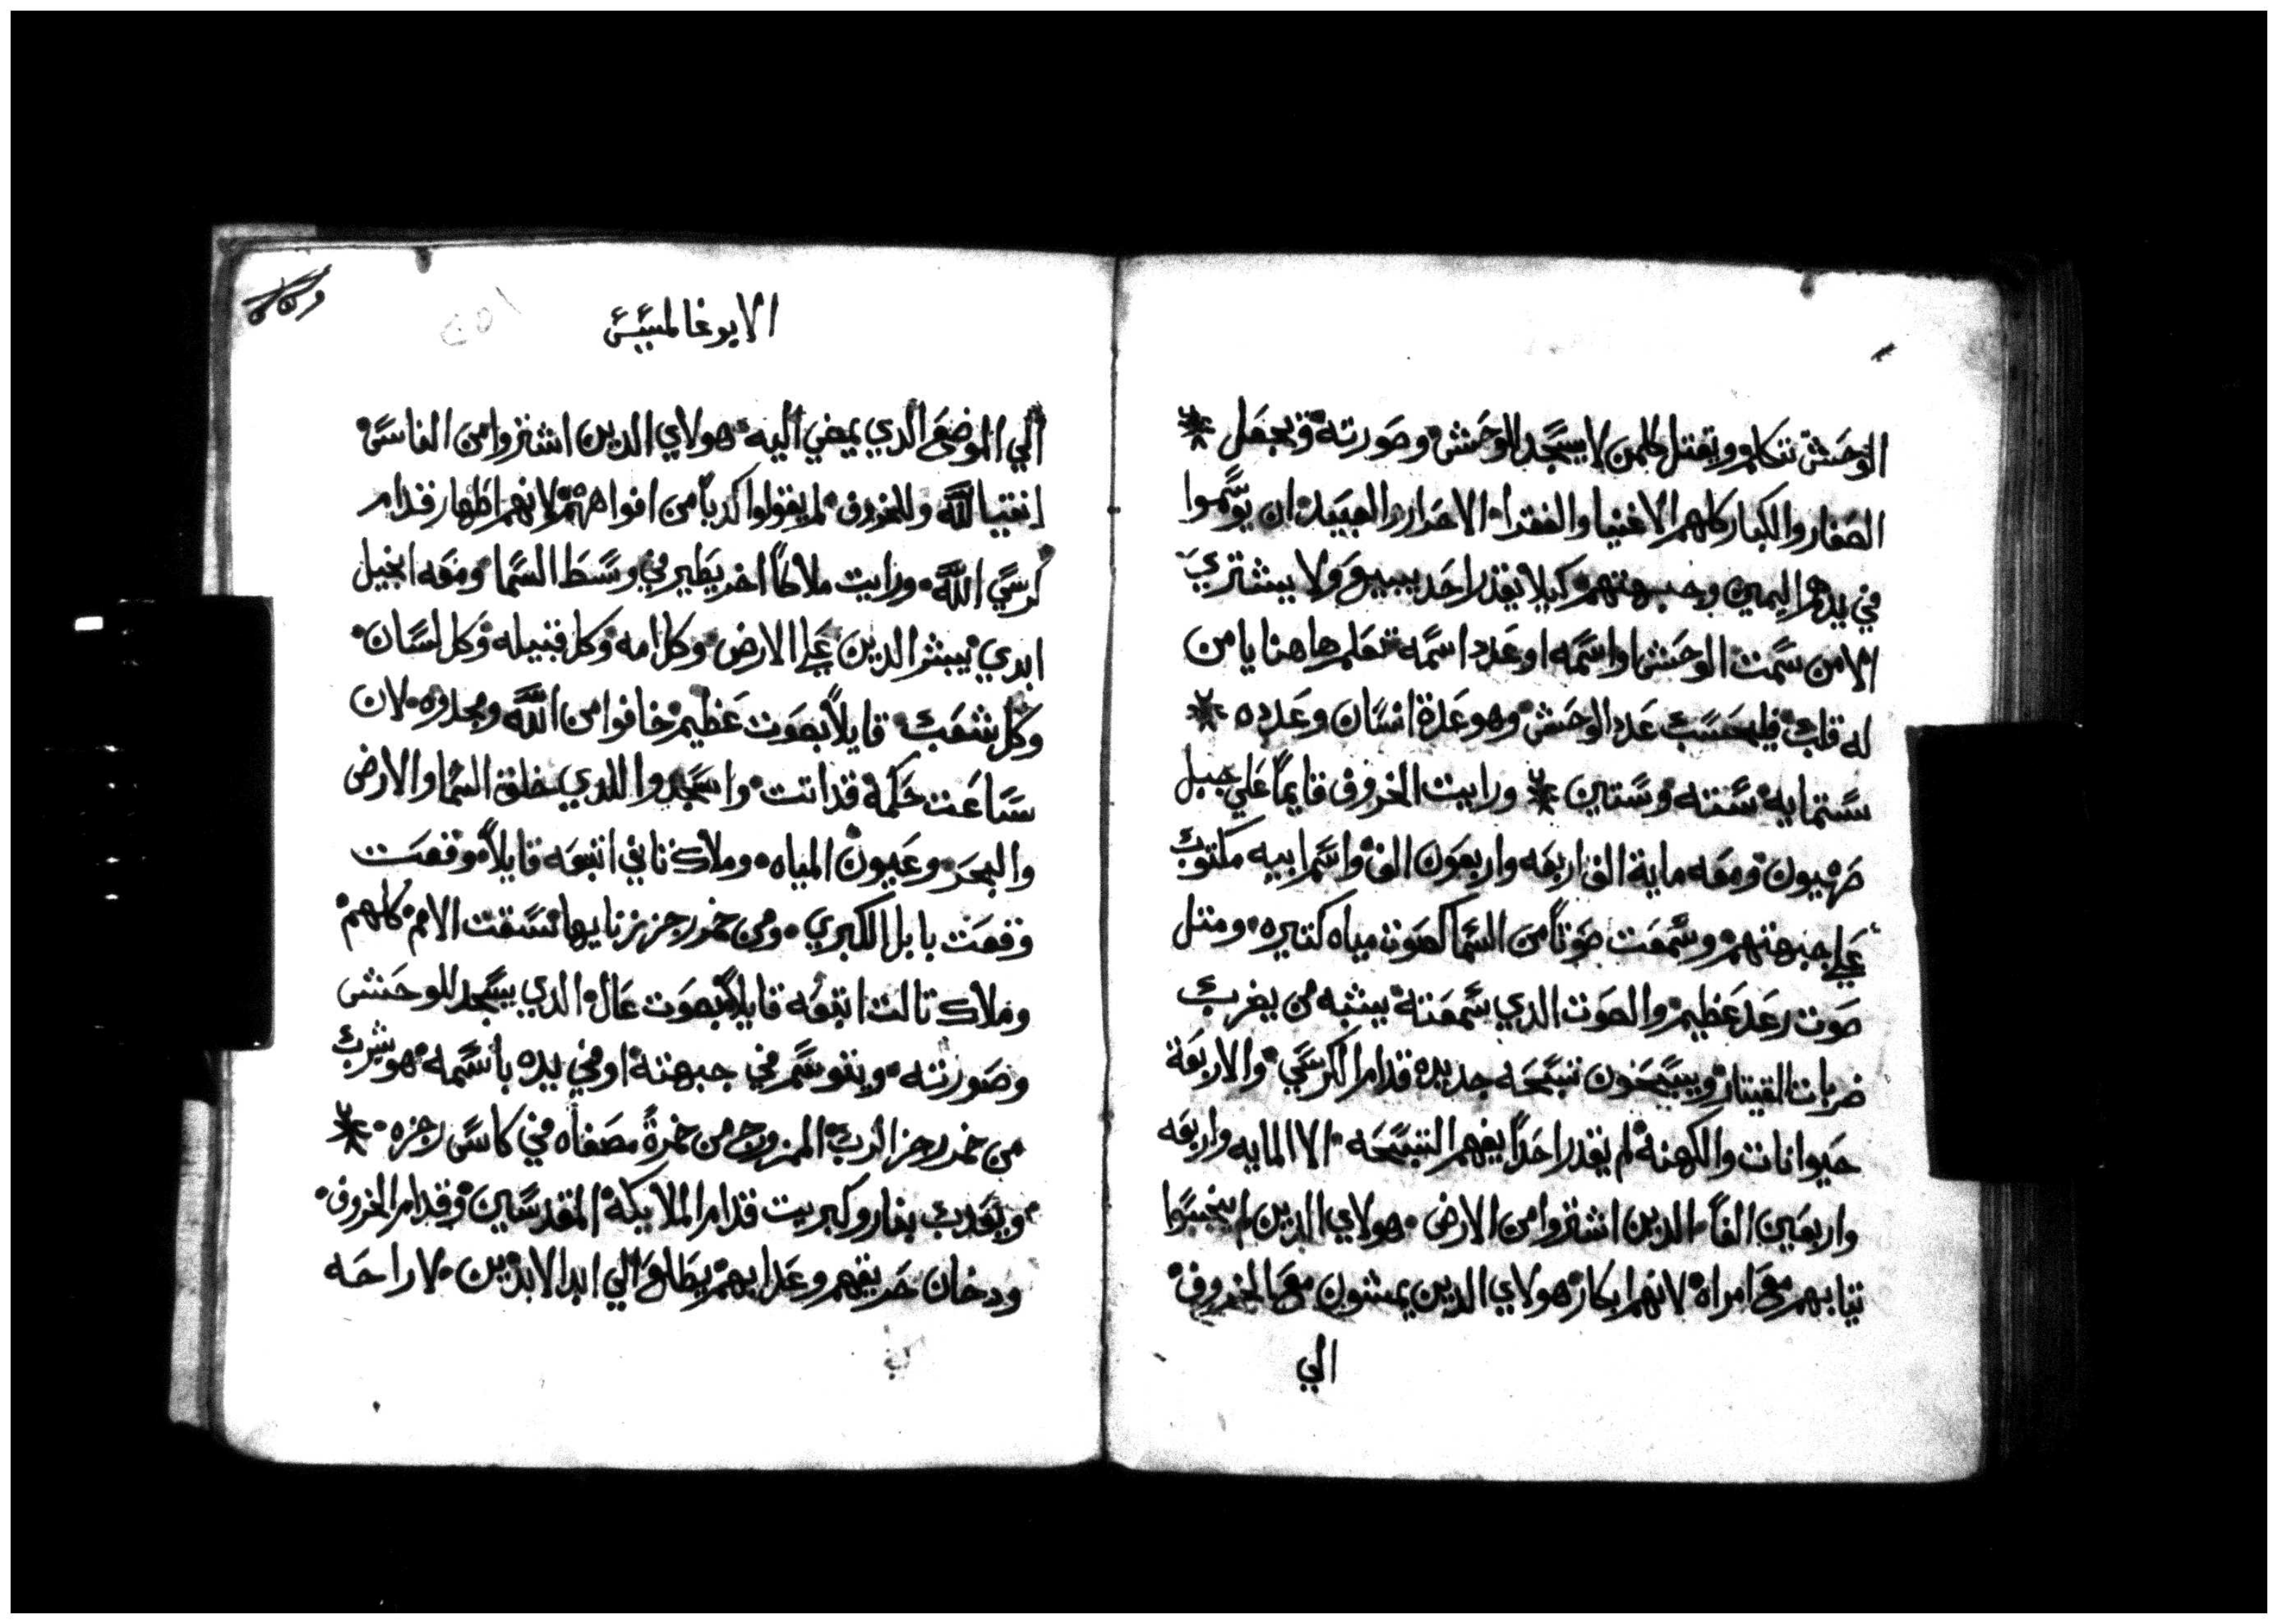 الوحش تتكلم ويقتل كلمن لا يسجد للوحش وصورته ويجعل
الصغار والكبار كلهم الاغنيا والفقرا الاحرار والعبيد ان يوسموا
في يدهم اليمين وجبهتهم كيلا يقدر احد يبيع ولا يشتري
الا من سمت الوحش او اسمه او عدد اسمه تعلم هاهنا يا من
له قلب فليحسب عدد الوحش وهو عدة انسان وعدده
ستمايه سته وستين ورايت الخروف قايماً علي جبل
صهيون ومعه ماية الف اربعه واربعون الف واسم ابيه مكتوب
علي جبهتهم وسمعت صوتاً من السما كصوت مياه كتيره ومتل
صوت رعد عظيم والصوت الدي سمعته يشبه من يضرب
ضربات القيتار ويسبحون تسبحه جديده قدام الكرسي والاربعة
حيوانات والكهنة لم يقدر احداً يفهم التسبحه الا المايه واربعه
واربعين الفاً الدين اشتروا من الارض هولاي الدين لم ينجسوا
تيابهم مع امراه لانهم ابكار هولاي الدين يمشون مع الخروف
الي
الابوغالمسيس
الي الموضع الدي يمضي اليه هولاي الدين اشتروا من الناس
انقيا لله وللخروف لم يقولوا كدباً من افواههم لانهم اطهار قدام
كرسي الله ورايت ملاكاً اخر يطير في وسط السما ومعه انجيل
ابدي يبشر الدين علي الارض وكل امه وكل قبيله وكل لسان
وكل شعب قايلاً بصوت عظيم خافوا من الله ومجدوه لان
ساعت حكمه قد اتت واسجدوا للدي خلق السما والارض
والبحر وعيون المياه وملاك تاني اتبعه قايلاً وقعت
وقعت بابل الكبري ومن خمر رجز زنايها سقت الامم كلهم
وملاك تالت اتبعه قايلاً بصوت عال الدي يسجد للوحش
وصورته ويتوسم في جبهته او في يده باسمه هو يشرب
من خمر رجز الرب الممزوج من خمرةً مصفاه في كاس رجزه
ويعدب بنار وكبريت قدام الملايكة المقدسين وقدام الخروف
ودخان حريقهم وعدابهم يطلع الي ابد الابدين لا راحه